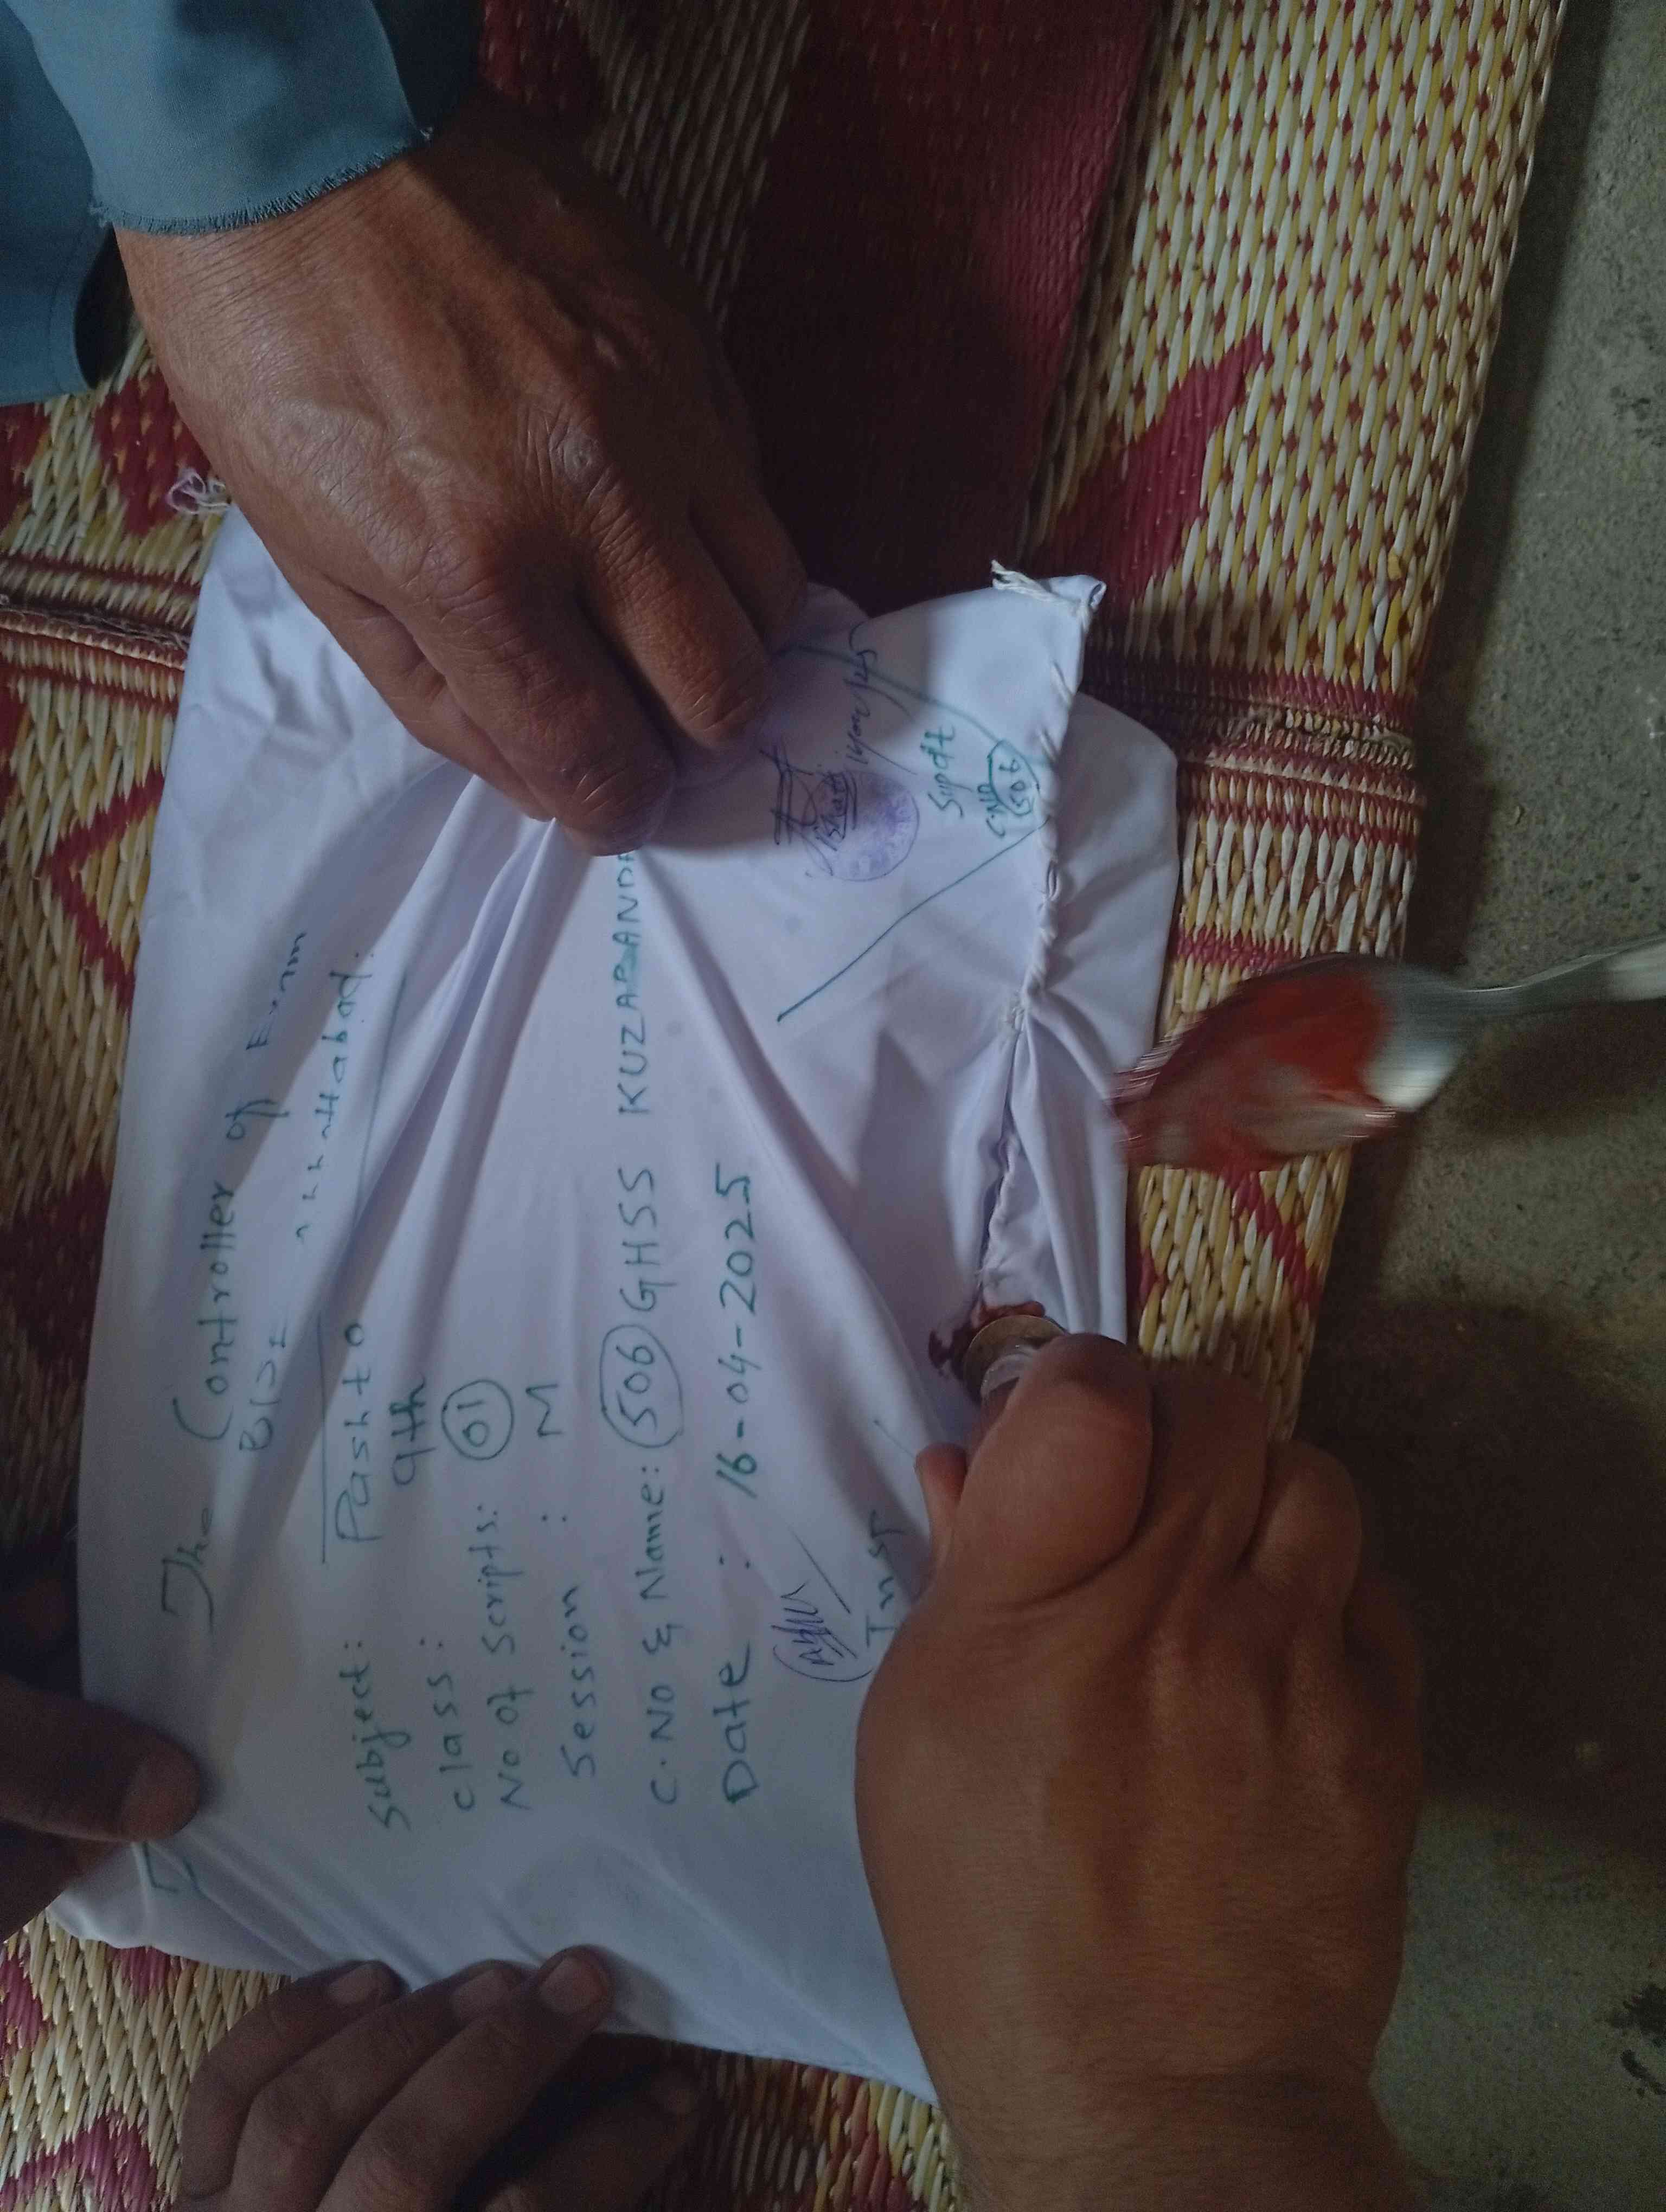 The Controller of Exam
BISE Abbottabad.
Subject: Pashto
Class: 9th
No of Scripts: 01
Session : M
C.No & Name: 506 GHSS KUZA BANDA
Date : 16-04-2025
Inst
Supdt
C.No
506